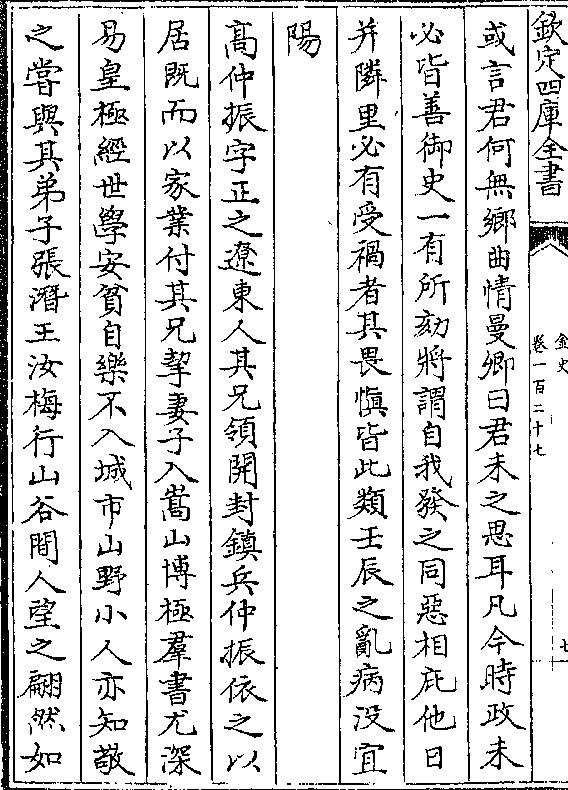 欽定四庫全書
金史
卷一百二十七
七
或言君何無鄉曲情曼卿曰君未之思耳凡今時政未
必皆善御史一有所劾將謂自我發之同惡相庇他日
并隣里必有受禍者其畏慎皆此類壬辰之亂病没宜
陽
高仲振字正之遼東人其兄領開封鎮兵仲振依之以
居既而以家業付其兄挈妻子入嵩山博極羣書尤深
易皇極經世學安貧自樂不入城市山野小人亦知敬
之嘗與其弟子張潛王汝梅行山谷間人望之翩然如